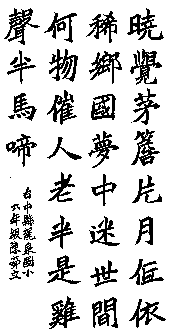 曉覺茅簷片月低依
稀鄉國夢中迷世間
何物催人老半是雞
聲半馬啼
台中縣龍泉國小
六年級陳